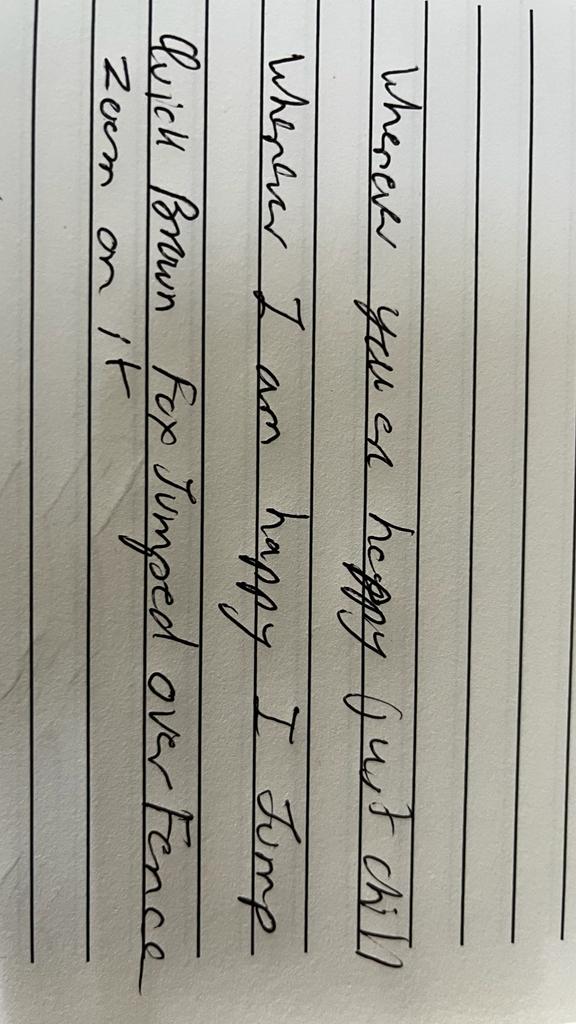 Wherever you er happy just chill
Whenever I am happy I Jump
Quick Brown Fox Jumped over Fence
Zoom on it